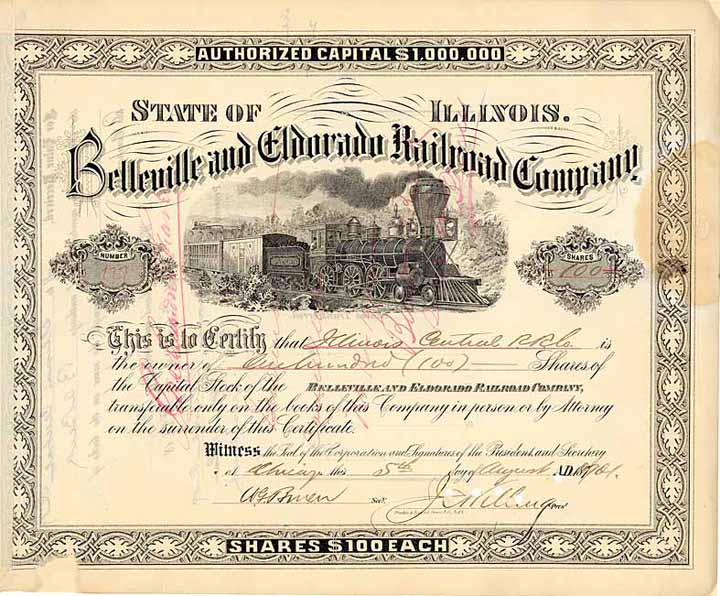 AUTHORIZED CAPITAL $1,000,000
STATE OF ILLINOIS.
Belleville and Eldorado Railroad Company,
NUMBER
SHARES
100
This is to Certify that Illinois Central R.R. Co. is
the owner of One hundred (100) Shares of
the Capital Stock of the BELLEVILLE AND ELDORADO RAILROAD COMPANY,
transferable only on the books of this Company in person or by Attorney
on the surrender of this Certificate.
Witness the Seal of the Corporation and Signatures of the President and Secretary
at Chicago this 5th day of August A.D. 1901.
Sec'y.
Pres't
SHARES $100 EACH